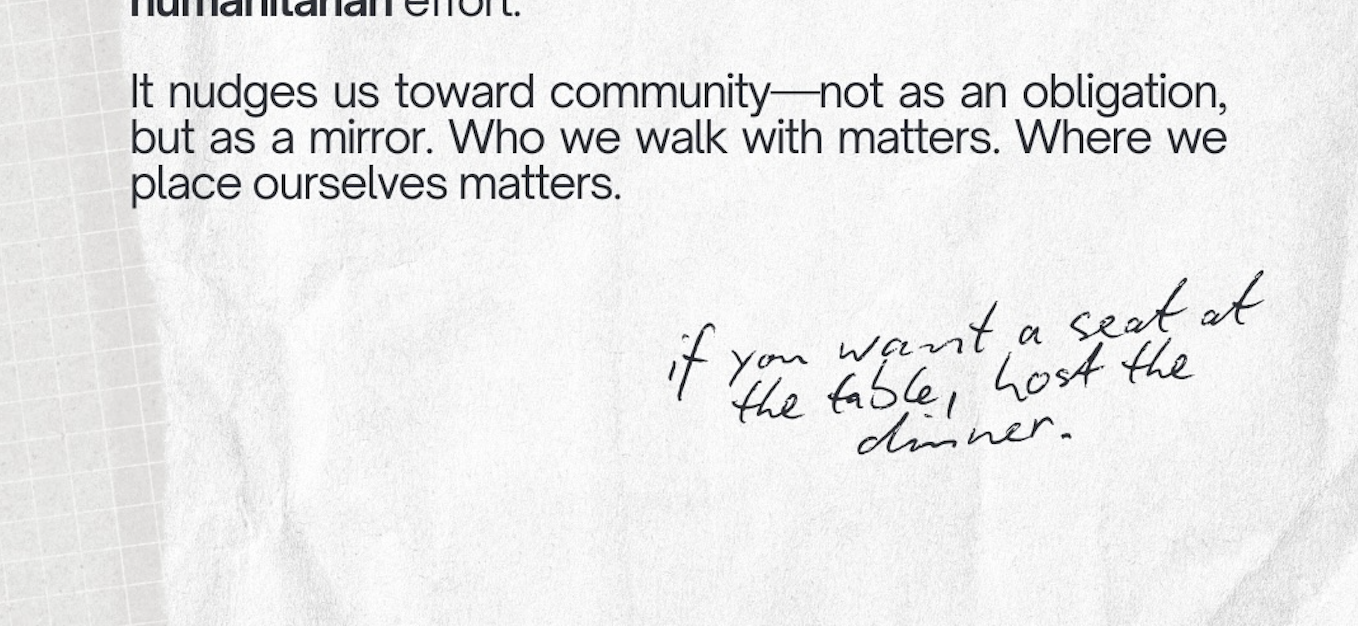 humanitarian effort.
It nudges us toward community—not as an obligation,
but as a mirror. Who we walk with matters. Where we
place ourselves matters.
if you want a seat at
the table, host the
dinner.